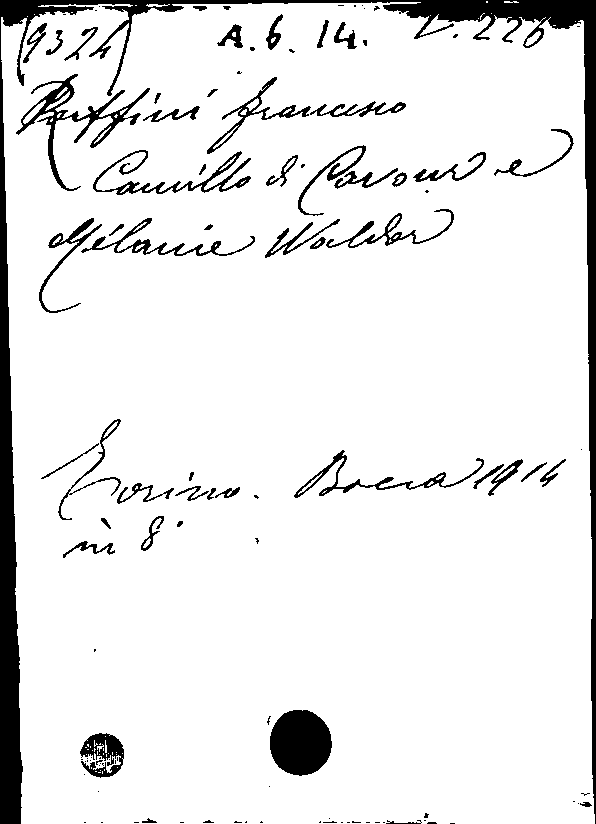 (9324) A.6.14. V.226
Ruffini Francesco
Camillo di Cavour e
Mélanie Waldor
Torino. Bocca 1914
in 8°